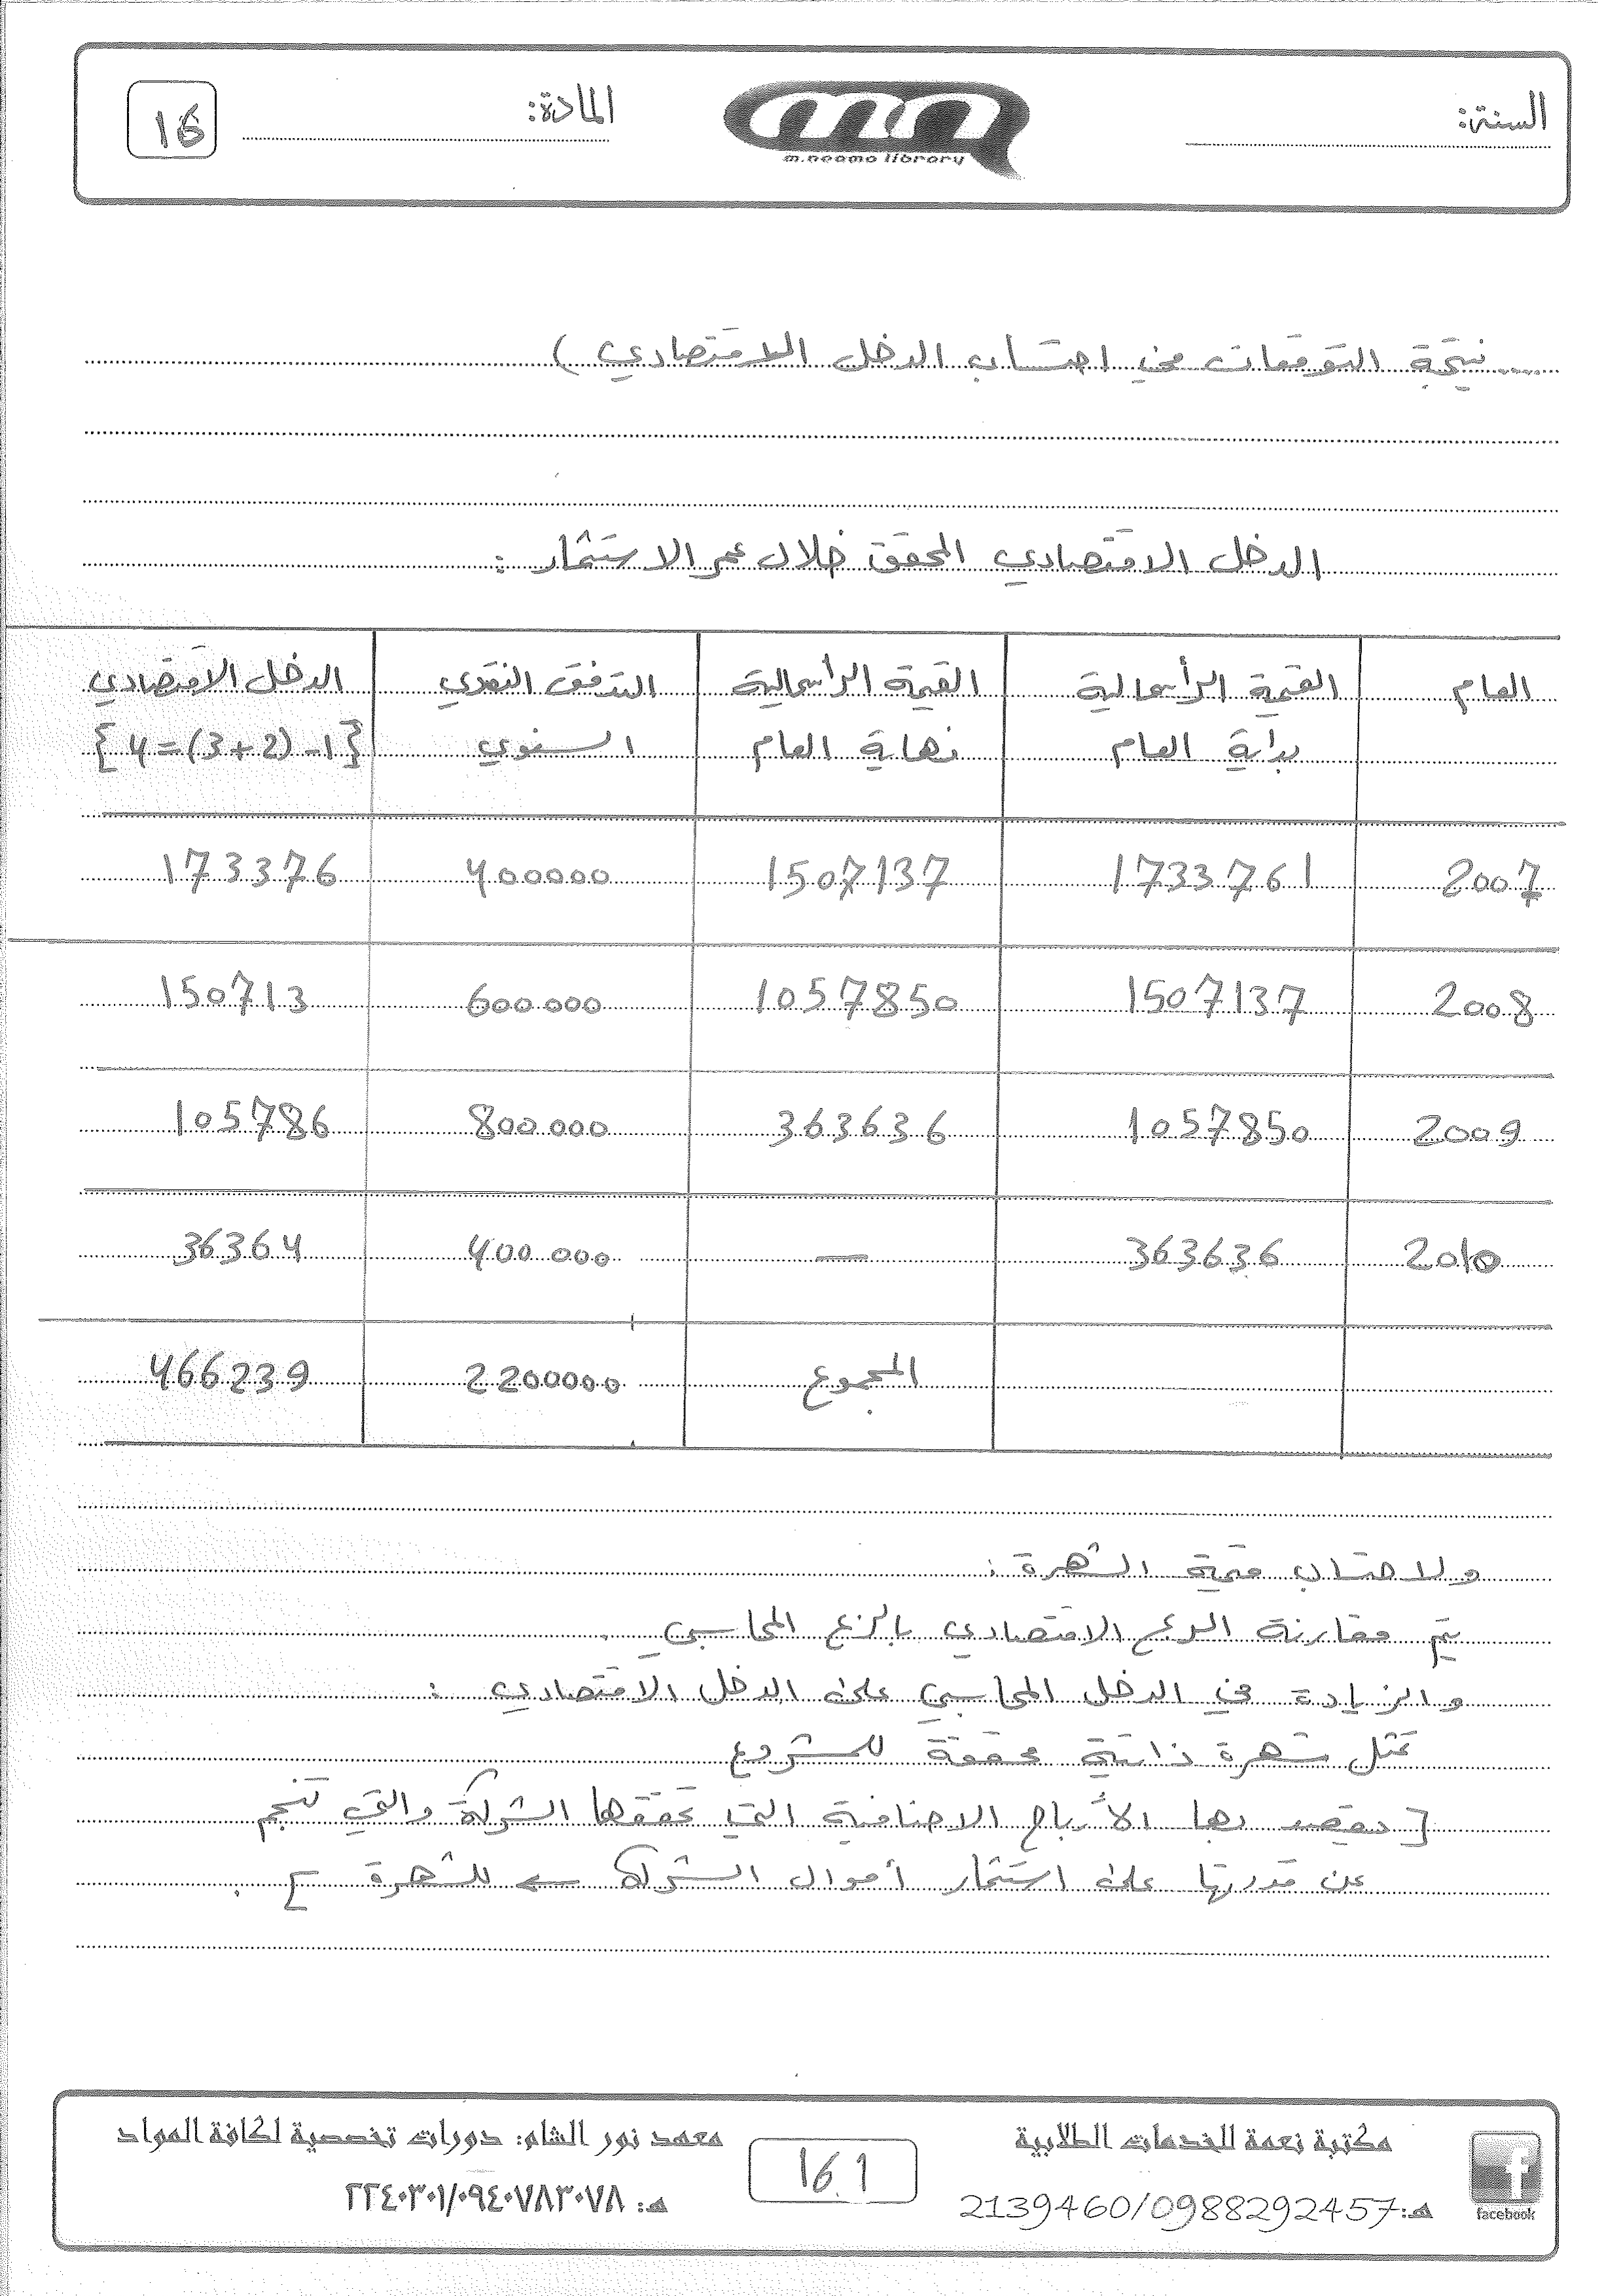 السنة:
m.neama library
المادة:
16
نتيجة التوقعات في احتساب الدخل الاقتصادي )
الدخل الاقتصادي المحقق خلال عمر الاستثمار :
العام | القيمة الرأسمالية بداية العام | القيمة الرأسمالية نهاية العام | التدفق النقدي السنوي | الدخل الاقتصادي {4=(3+2)-1}
2007 | 1733761 | 1507137 | 400000 | 173376
2008 | 1507137 | 1057850 | 600000 | 150713
2009 | 1057850 | 363636 | 800000 | 105786
2010 | 363636 | — | 400000 | 36364
المجموع | 2200000 | 466239
ولاحتساب قيمة الشهرة :
يتم مقارنة الربح الاقتصادي بالربح المحاسبي .
والزيادة في الدخل المحاسبي على الدخل الاقتصادي :
تمثل شهرة ذاتية محققة للمشروع
[ يقصد بها الأرباح الاضافية التي تحققها الشركة والتي تنجم
عن قدرتها على استثمار أموال الشركة ← للشهرة ] .
مكتبة نعمة للخدمات الطلابية
هـ:2139460/0988292457
facebook
16.1
معهد نور الشام: دورات تخصصية لكافة المواد
هـ: ٢٢٤٠٣٠١/٠٩٤٠٧٨٣٠٧٨